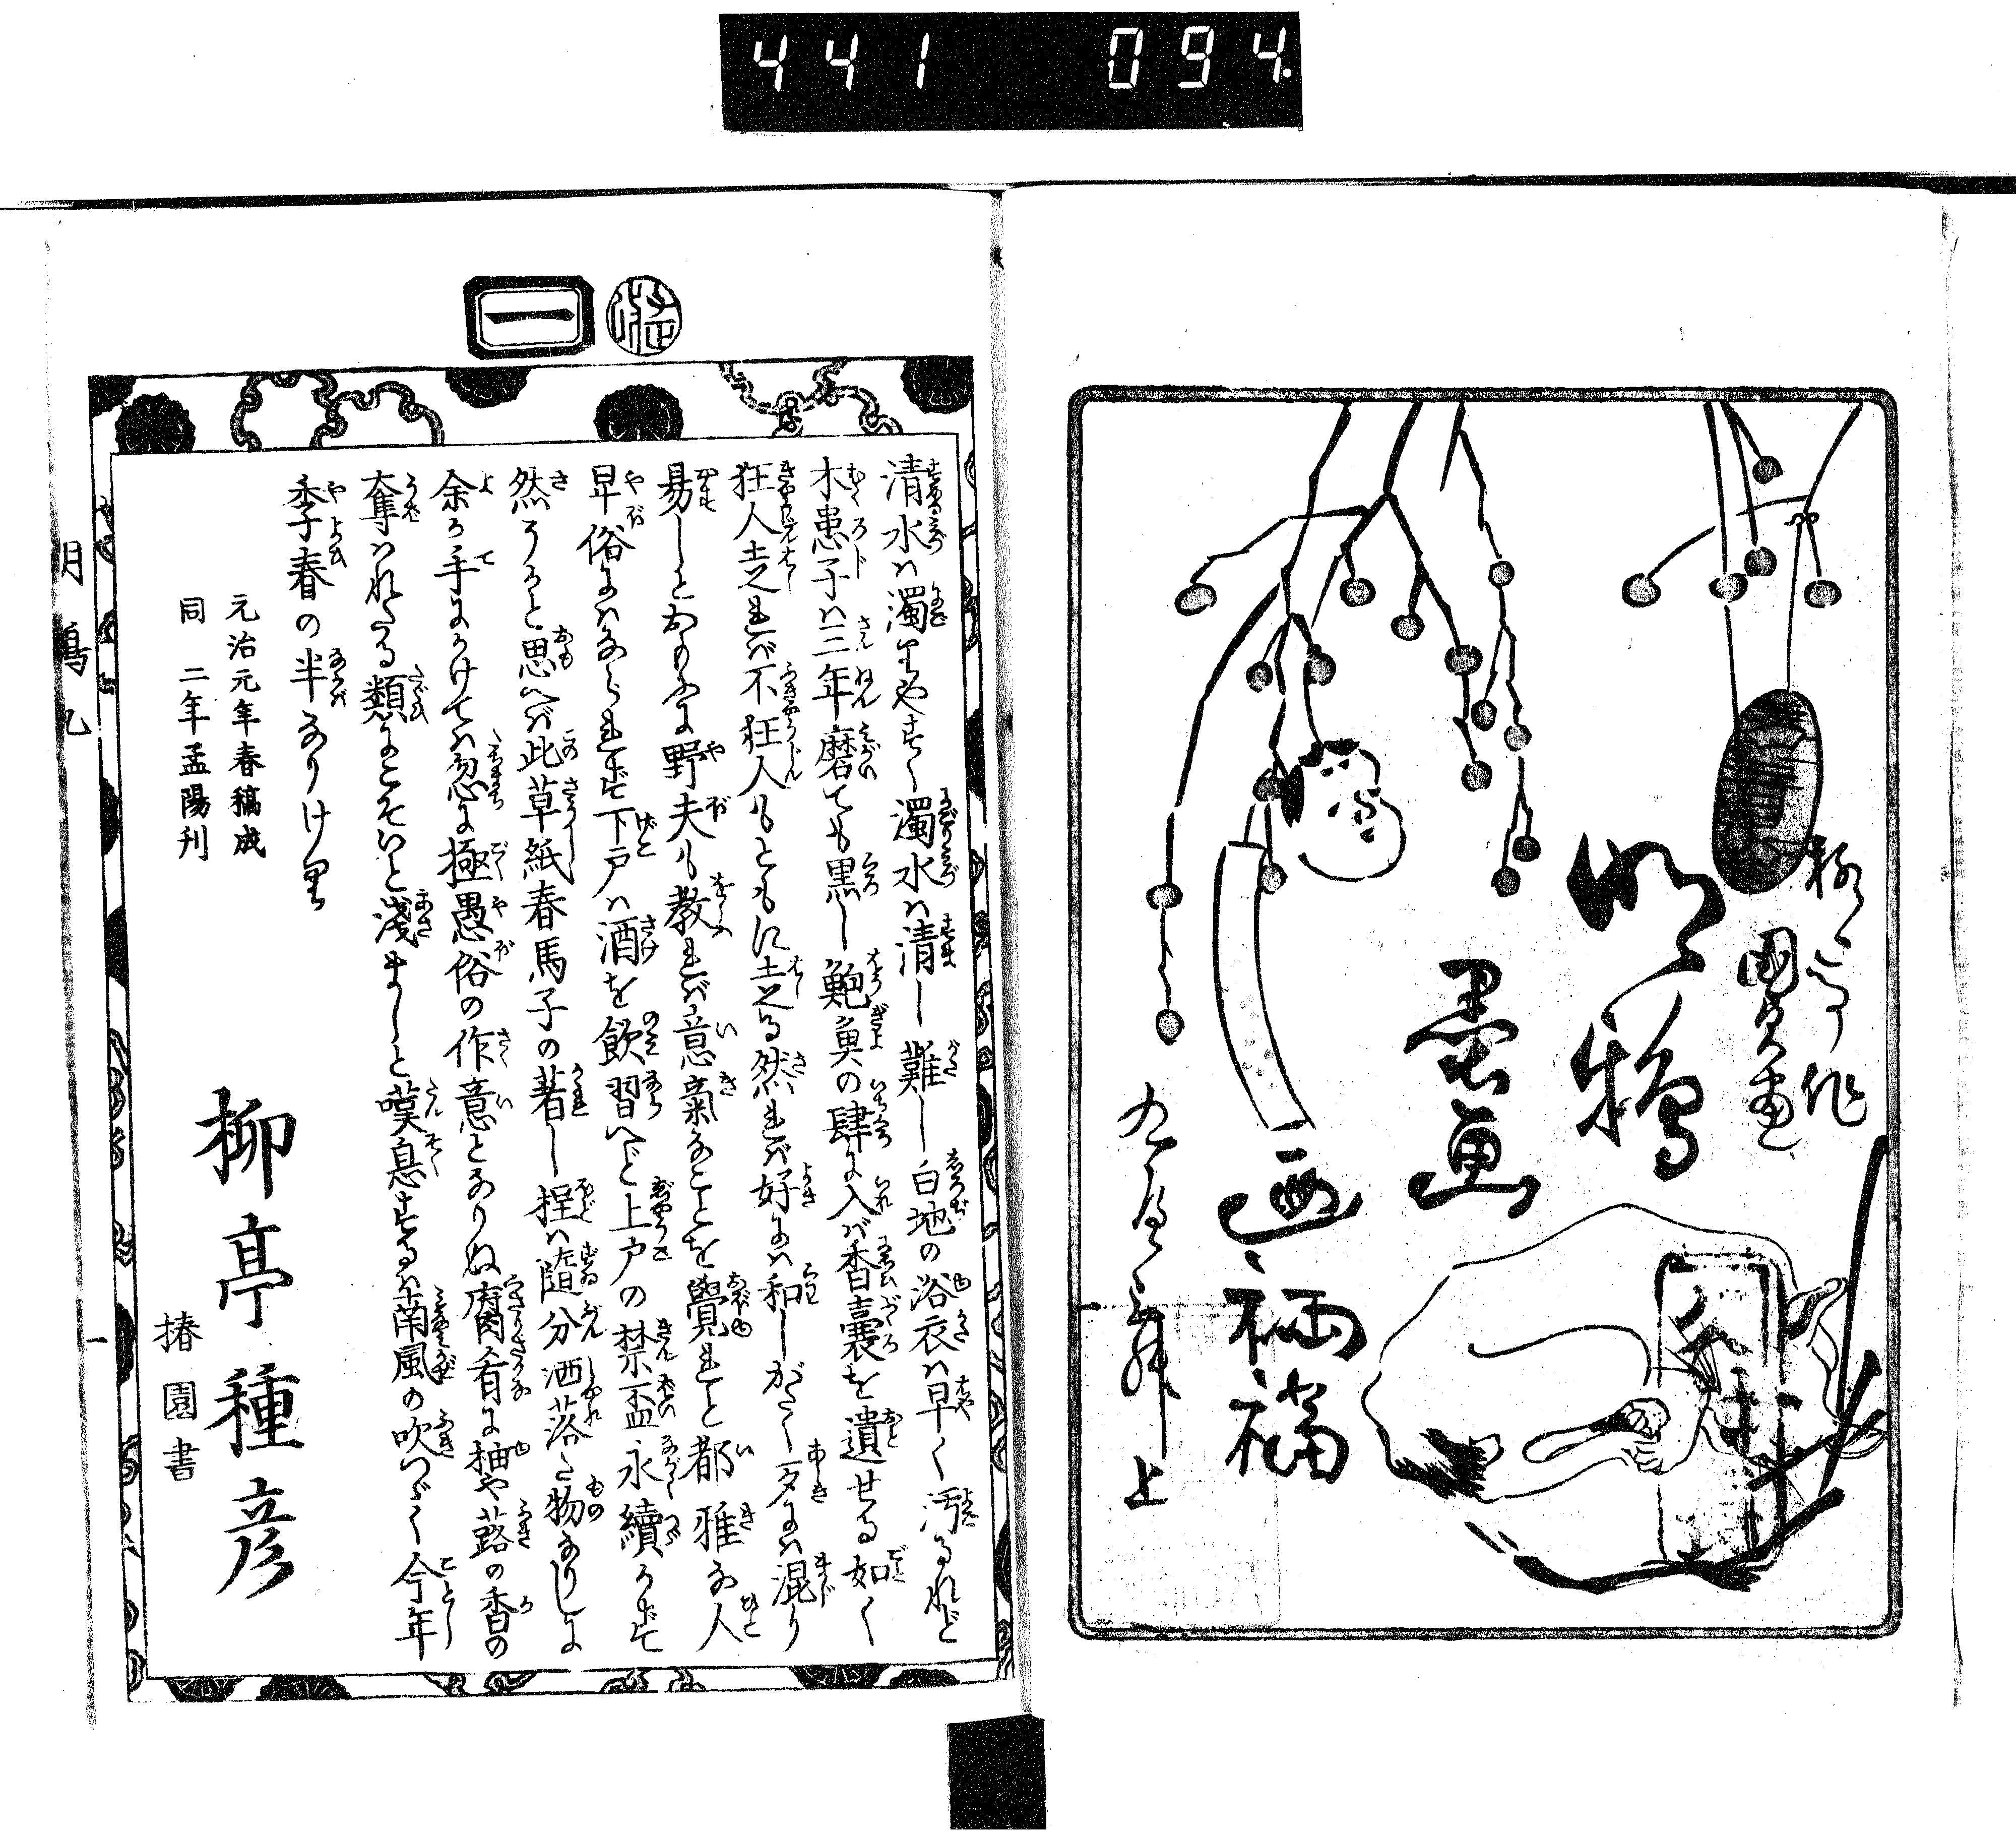 441 094.
柳亭作
国貞画
明鴉
墨画
廼裲襠
九編上
一
清水ハ濁りやすく濁水ハ清し難し白地の浴衣ハ早く汚るれど
木患子ハ三年磨ても黒し鮑魚の肆に入バ香嚢を遺せる如く
狂人走れバ不狂人もともに走る然れバ好にハ和しがたく歹にハ混り
易しとおもふに野夫も教れバ意氣なことを覺れど都雅な人
早俗にハなられず下戸ハ酒を飲習へど上戸の禁盃永續かず
然うかと思へバ此草紙春馬子の著し程ハ随分洒落た物なりしに
余が手にかけてハ忽に極愚俗の作意となりぬ腐肴に柚や蕗の香の
奪ハれたる類にこそいと淺ましと嘆息するハ南風の吹つゞく今年
季春の半なりけり
元治元年春稿成
同 二年孟陽刊
柳亭種彦
椿園書
明烏九
一